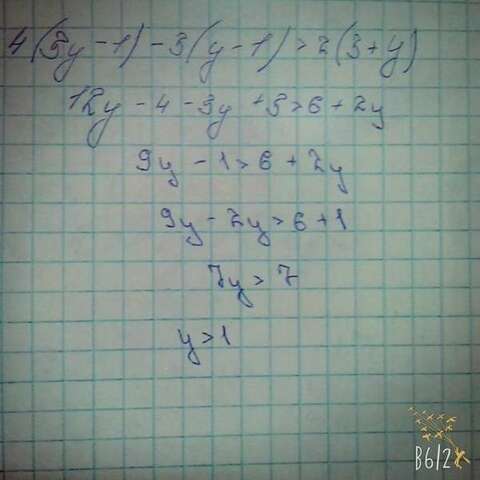 4(3y-1)-3(y-1)>2(3+y)
12y-4-3y+3>6+2y
9y-1>6+2y
9y-2y>6+1
7y>7
y>1
B612